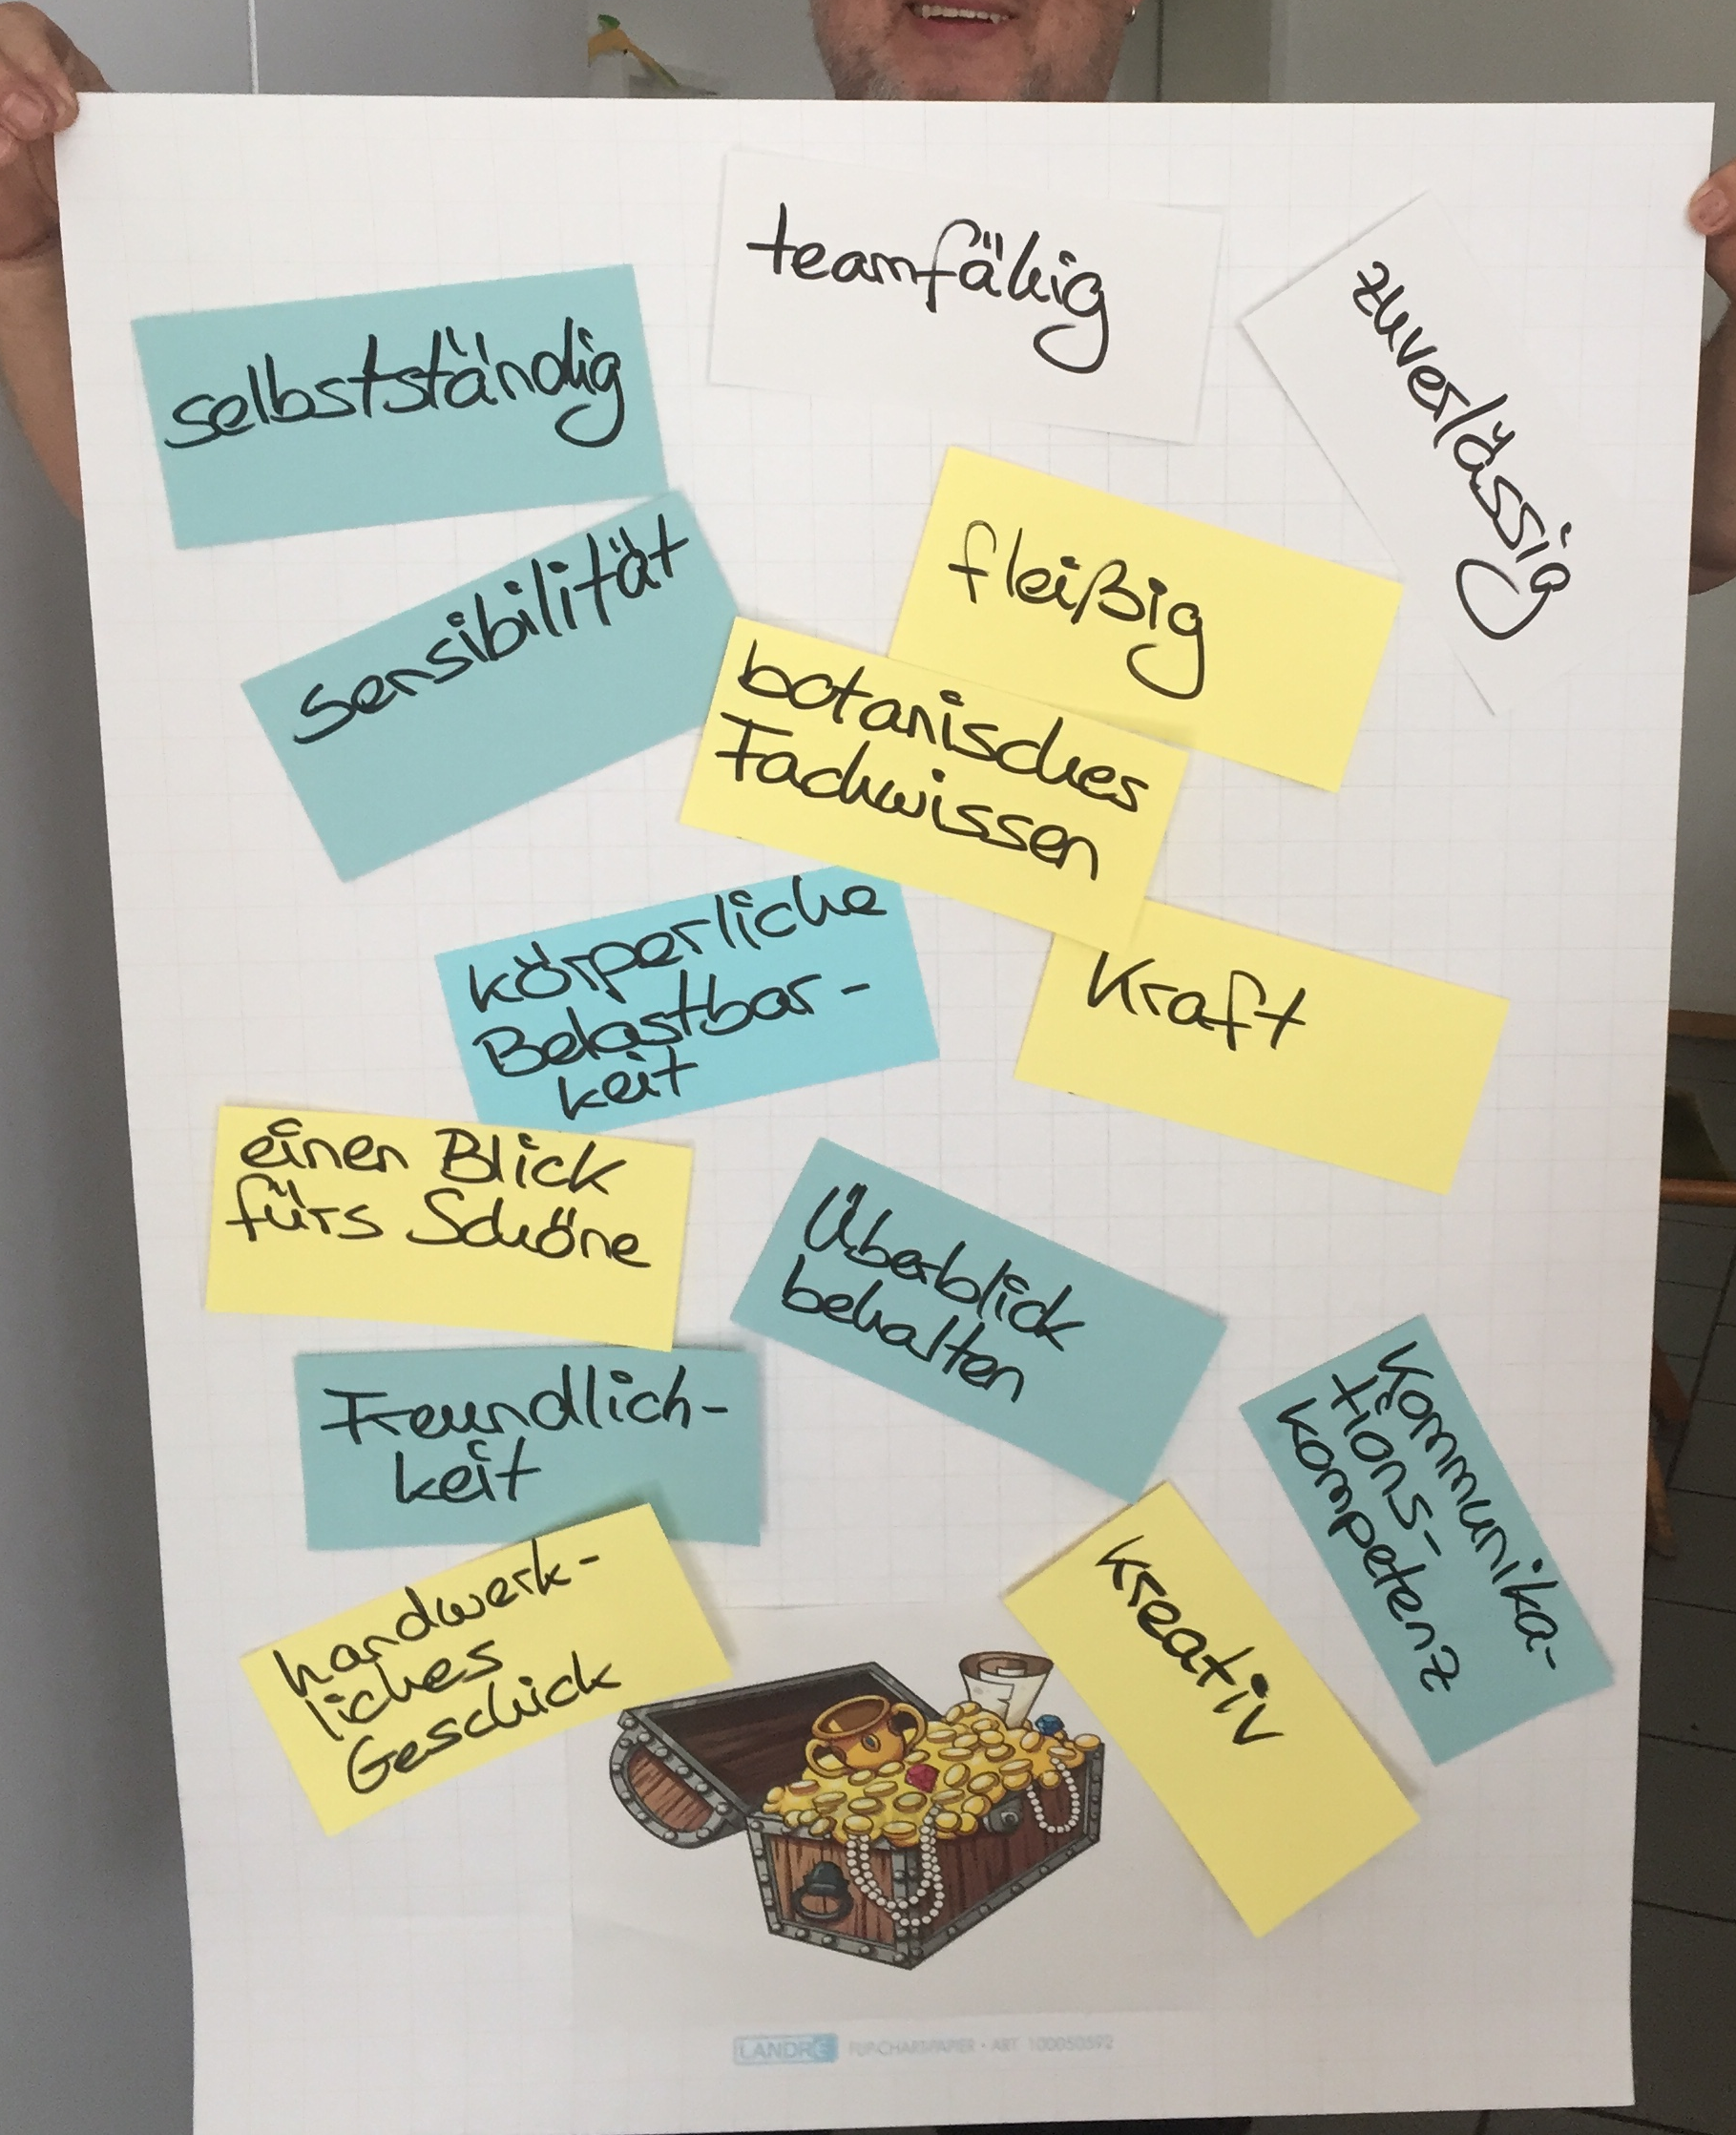 teamfähig
zuverlässig
selbstständig
sensibilität
fleißig
botanisches
Fachwissen
körperliche
Belastbar-
keit
Kraft
einen Blick
fürs Schöne
Überblick
behalten
Freundlich-
keit
Kommunika-
tions-
kompetenz
handwerk-
liches
Geschick
kreativ
LANDRÉ FLIPCHARTPAPIER • ART 100050592